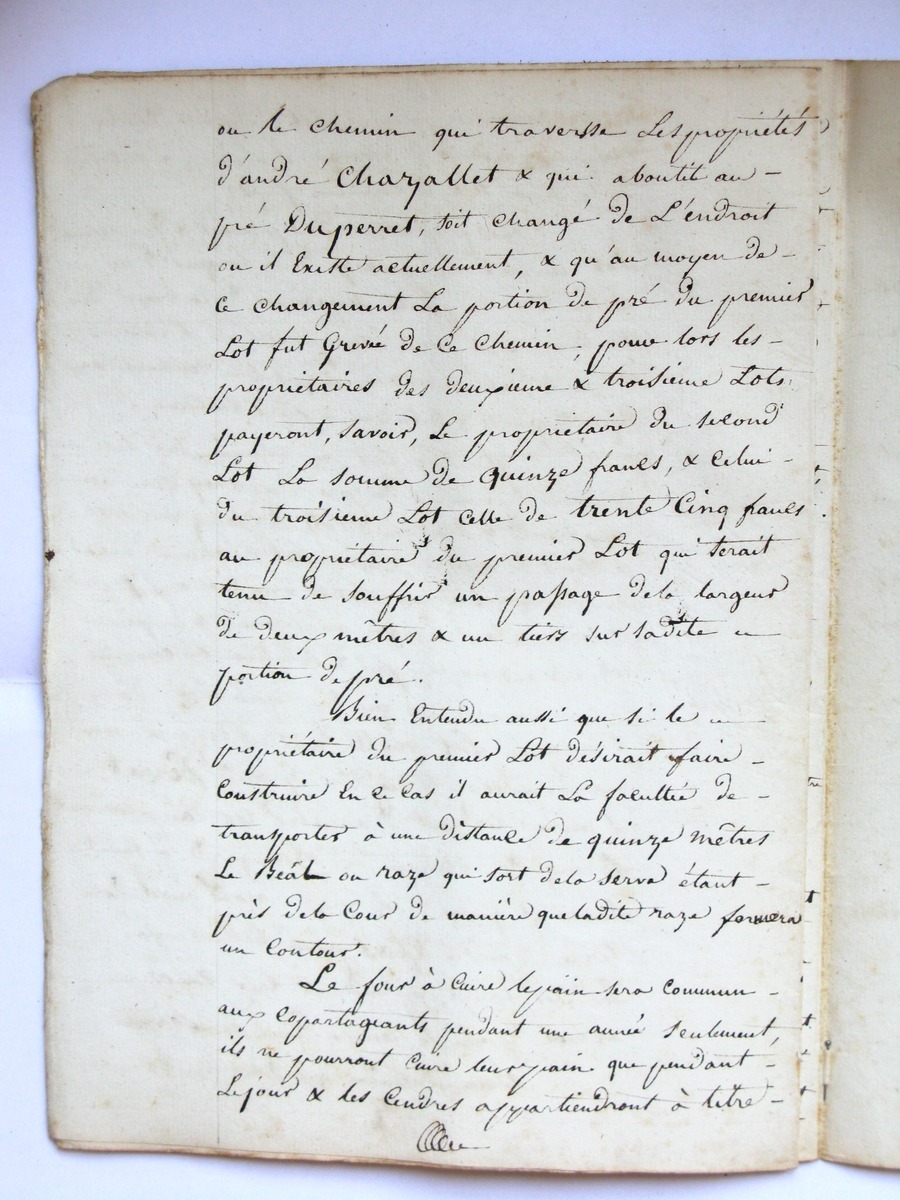 ou le chemin qui traverse Les propriétés
d'andré Chazallet & qui aboutit au -
pré Duperret, soit changé de L'endroit
ou il Existe actuellement, & qu'au moyen de -
ce changement La portion de pré du premier
Lot fut Grevée de Ce Chemin, pour lors les -
propriétaires des deuxieme & troisieme Lots
payeront, savoir, Le propriétaire du second
Lot La somme de quinze francs, & Celui -
du troisieme Lot Celle de trente Cinq francs
au propriétaire du premier Lot qui serait
tenu de souffrir un passage dela largeur
de deux mêtres & un tiers sur sadite
portion de pré.
Bien Entendu aussi que si le
propriétaire du premier Lot désirait faire -
Construire En ce Cas il aurait La facultée de -
transporter à une distance de quinze mêtres
Le Beál ou raze qui sort dela serve étant -
près dela Cour de manière que ladite raze formera
un Contour.
Le four à Cuire le pain sera Commun -
aux Copartageants pendant une année seulement,
ils ne pourront Cuire leur pain que pendant -
Le jour & les Cendres appartiendront à titre -